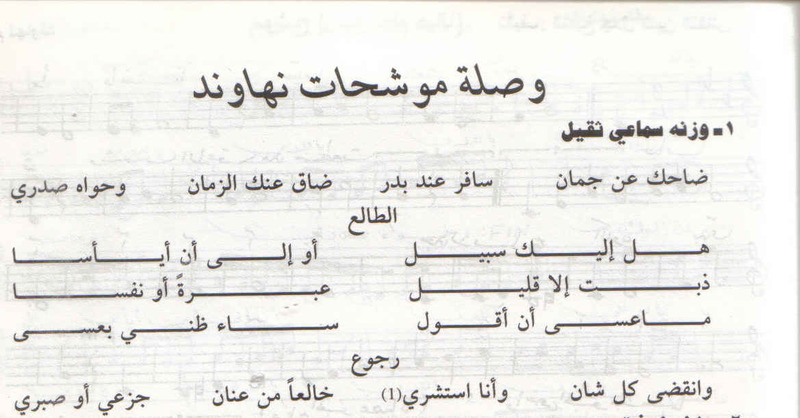 وصلة موشحات نهاوند
١ـ وزنه سماعي ثقيل
ضاحك عن جمان سافر عند بدر ضاق عنك الزمان وحواه صدري
الطالع
هل إليك سبيل أو إلى أن أيأسا
ذبت إلا قليل عبرةً أو نفسا
ماعسى أن أقول ساء ظني بعسى
رجوع
وانقضى كل شان وأنا استشري(1) خالعاً من عنان جزعي أو صبري